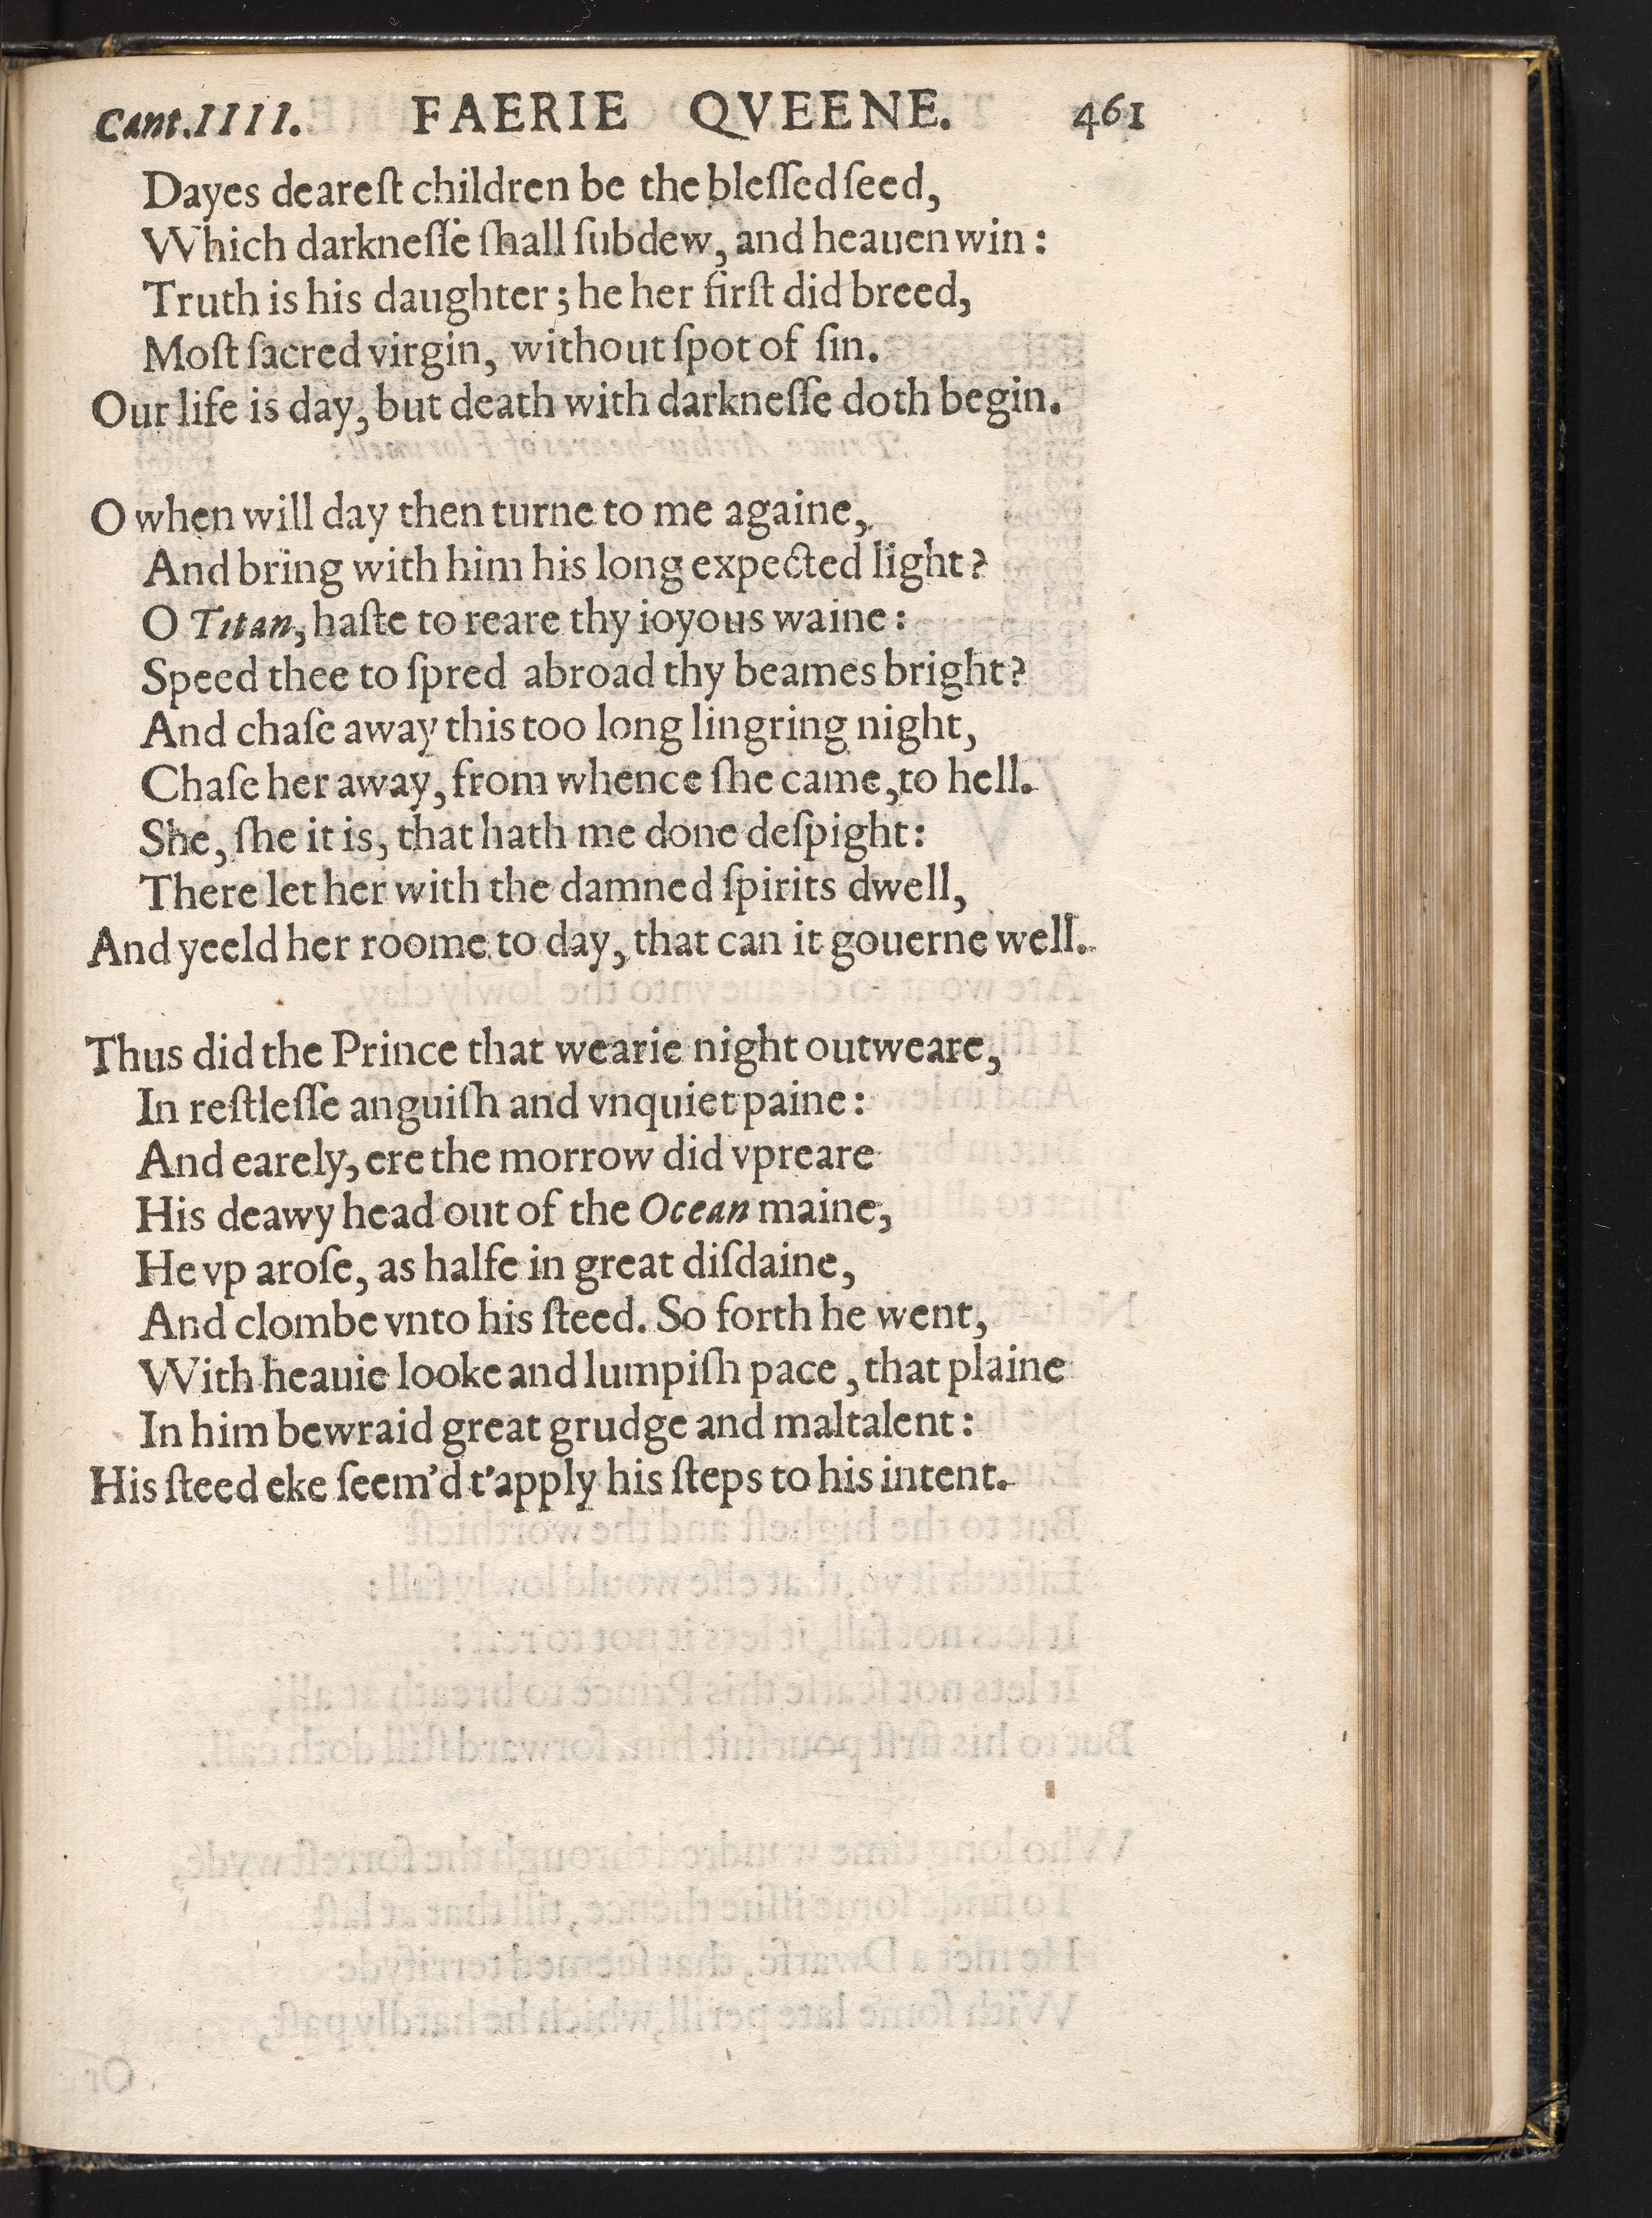 Cant.IIII. FAERIE QVEENE. 461
Dayes deareſt children be the bleſſed ſeed,
Which darkneſſe ſhall ſubdew, and heauen win:
Truth is his daughter; he her firſt did breed,
Moſt ſacred virgin, without ſpot of ſin.
Our life is day, but death with darkneſſe doth begin.
O when will day then turne to me againe,
And bring with him his long expected light?
O Titan, haſte to reare thy ioyous waine:
Speed thee to ſpred abroad thy beames bright?
And chaſe away this too long lingring night,
Chaſe her away, from whence ſhe came, to hell.
She, ſhe it is, that hath me done deſpight:
There let her with the damned ſpirits dwell,
And yeeld her roome to day, that can it gouerne well.
Thus did the Prince that wearie night outweare,
In reſtleſſe anguiſh and vnquiet paine:
And earely, ere the morrow did vpreare
His deawy head out of the Ocean maine,
He vp aroſe, as halfe in great diſdaine,
And clombe vnto his ſteed. So forth he went,
With heauie looke and lumpiſh pace, that plaine
In him bewraid great grudge and maltalent:
His ſteed eke ſeem'd t'apply his ſteps to his intent.